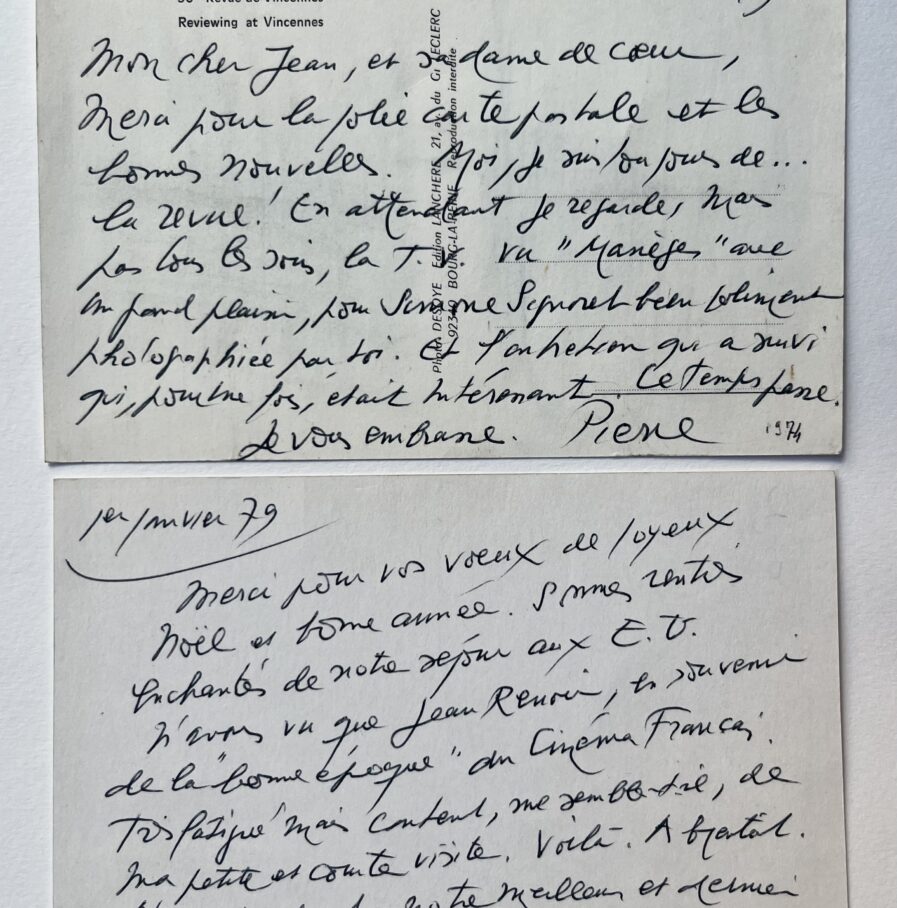 Revue de Vincennes
Reviewing at Vincennes
Photo DESOYE Edition LANCHERE 21, av. du Gl LECLERC
92340 BOURG-LA-REINE Reproduction interdite
Mon cher Jean, et sa dame de cœur,
Merci pour la jolie carte postale et les
bonnes nouvelles. Moi, je suis toujours de...
la revue! En attendant je regarde, mais
pas tous les soirs, la T.V. vu "Manèges" avec
un grand plaisir, pour Simone Signoret bien joliment
photographiée par toi. Et l'entretien qui a suivi
qui, pour une fois, était intéressant. Ce temps passe.
Je vous embrasse. Pierre 1974
1er janvier 79
Merci pour vos voeux de joyeux
Noël et bonne année. Sommes rentrés
enchantés de notre séjour aux E.U.
N'avons vu que Jean Renoir, en souvenir
de la "bonne époque" du Cinéma Français.
Très fatigué mais content, me semble-t-il, de
ma petite et courte visite. Voilà. A bientôt.
notre meilleur et dernier